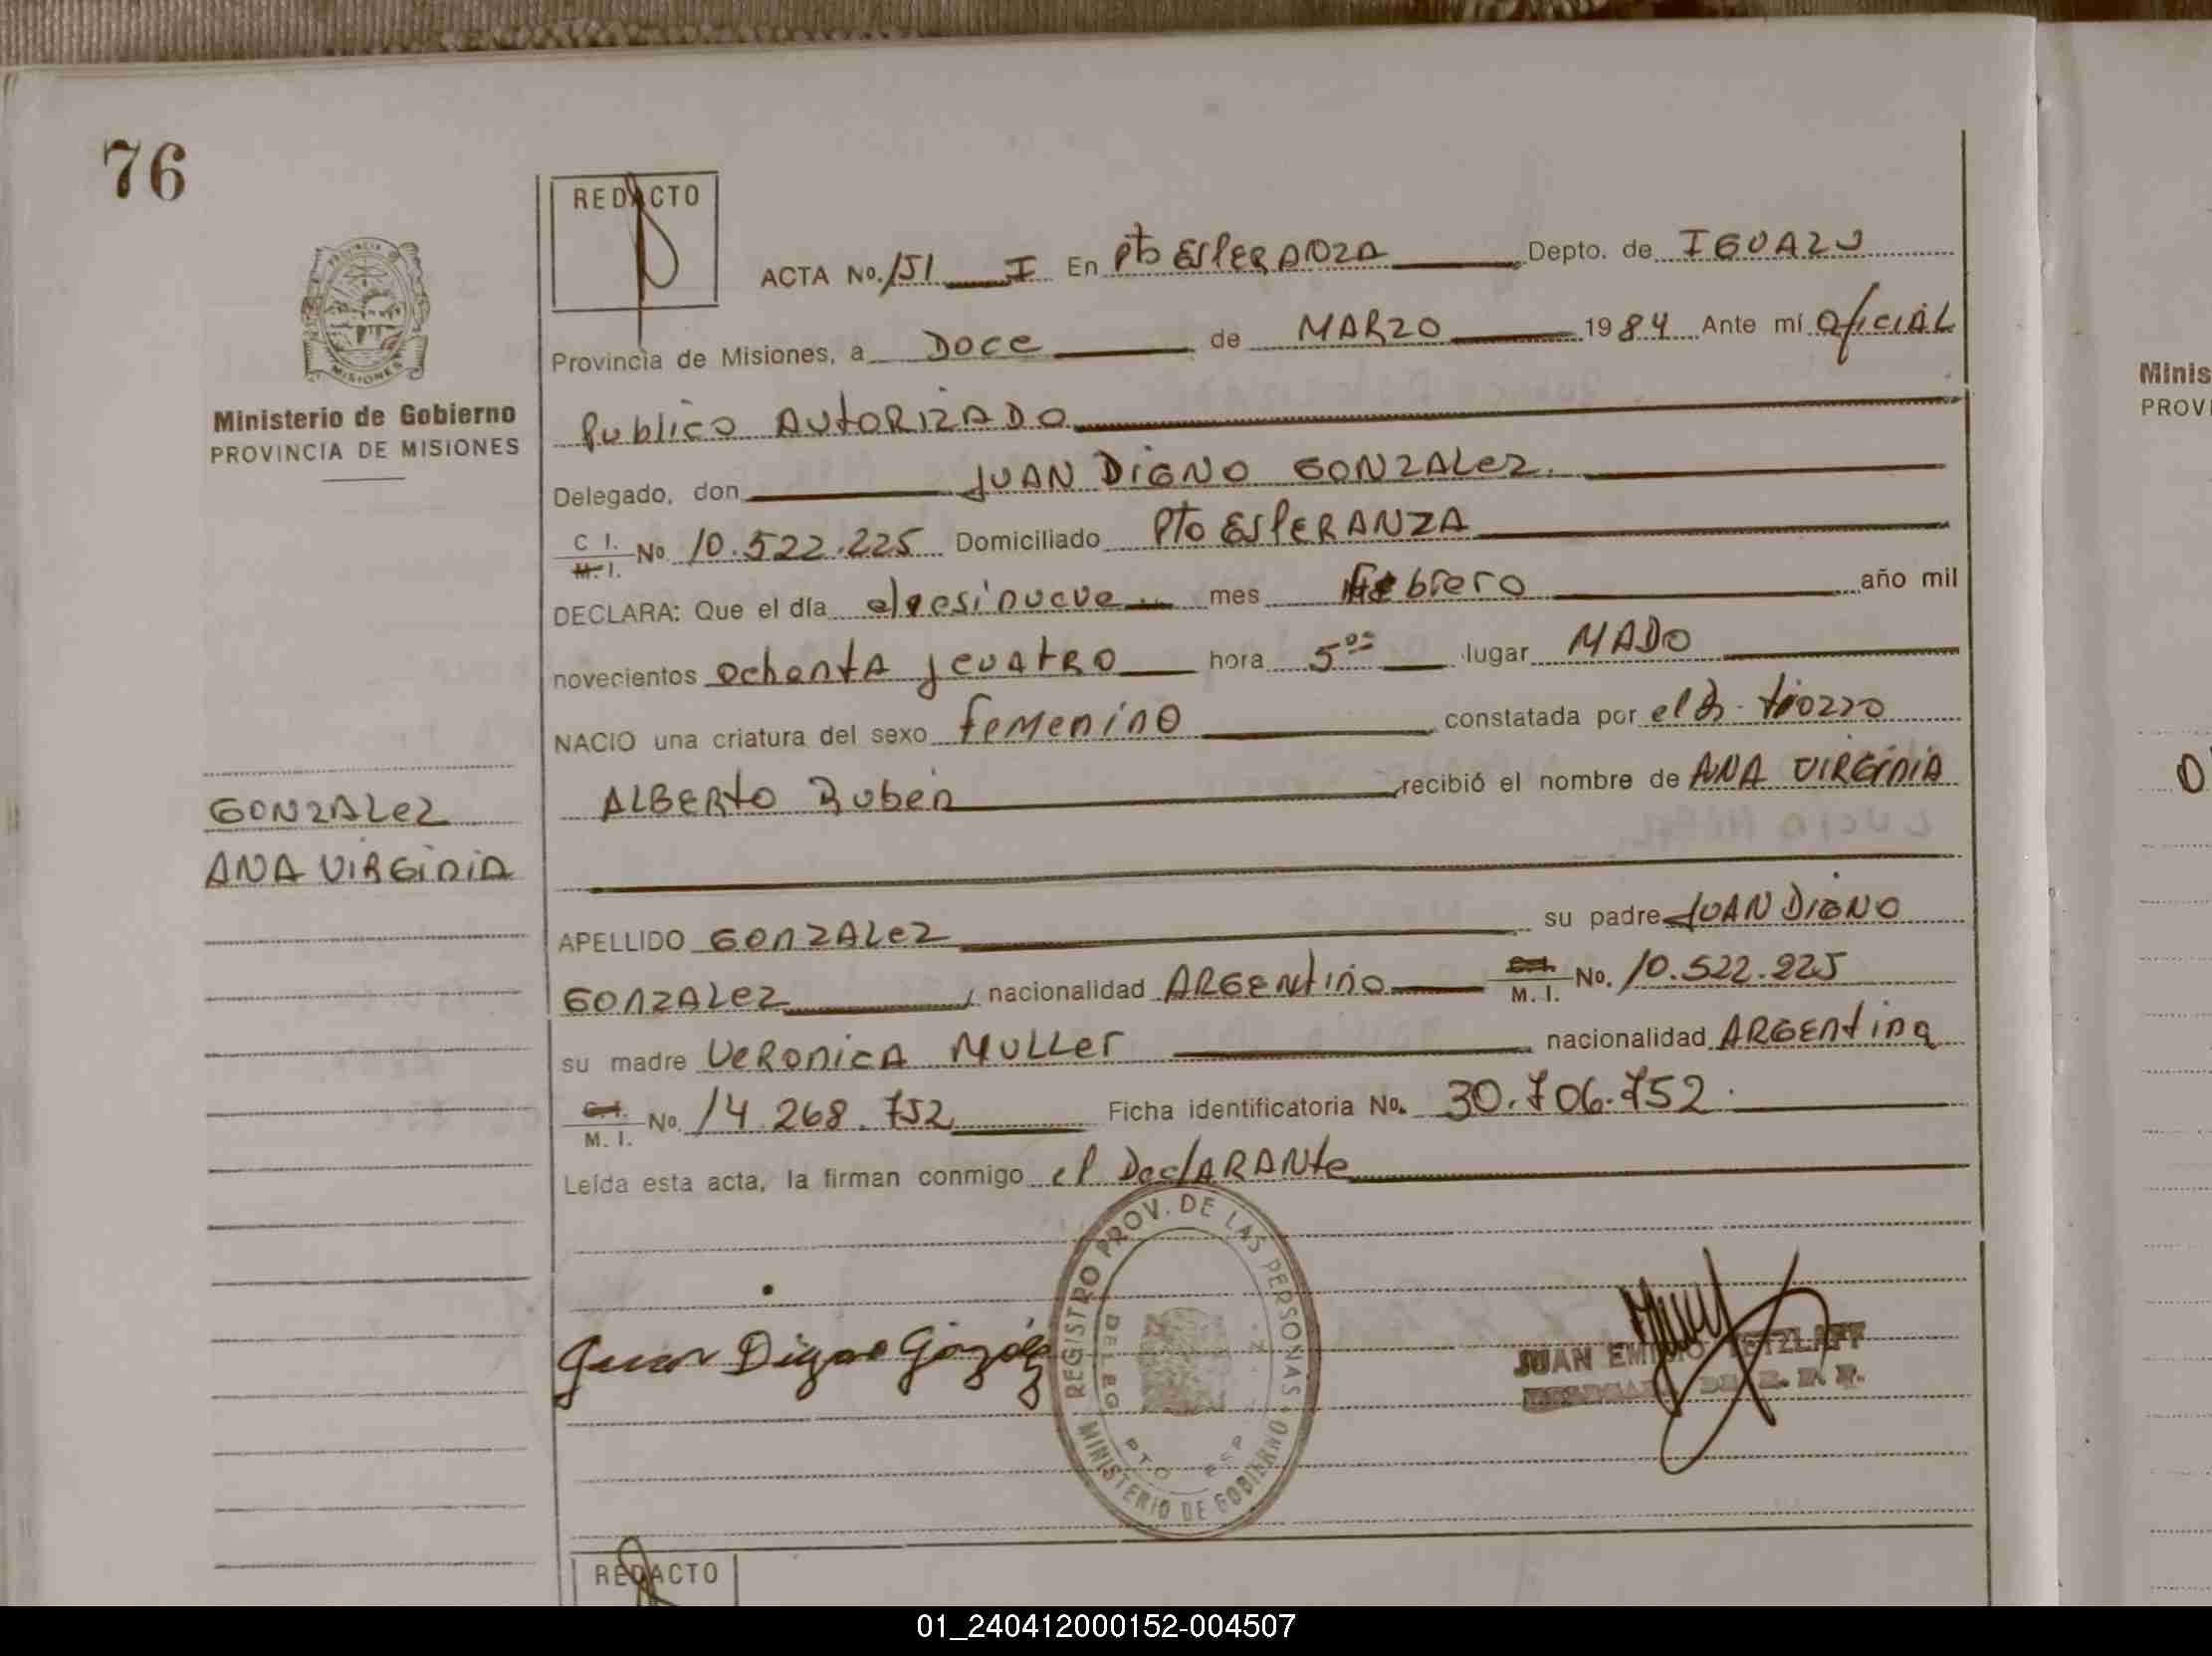 76
REDACTO
ACTA No. 151 I En Pto ESPERANZA Depto. de IGUAZU
Provincia de Misiones, a Doce de MARZO 1984 Ante mí oficiAL
Publico AUtORIZADO
Delegado, don JUAN DiGNO GONZALez.
C I. M. I. No. 10.522.225 Domiciliado Pto ESPERANZA
DECLARA: Que el día diesinueve mes Febrero año mil
novecientos ochentA y cuAtRO hora 5oo lugar MADO
NACIO una criatura del sexo femenino constatada por el Dr. tiozzo
ALBERtO Ruben recibió el nombre de ANA VIRGiniA
APELLIDO GonZALez su padre JUAN DiGNO
GonZALez, nacionalidad ARGEntino C.I. M. I. No. 10.522.225
su madre VeRonicA MULLer nacionalidad ARGEntina
C.I. M. I. No. 14.268.752 Ficha identificatoria No. 30.706.752.
Leída esta acta, la firman conmigo el DeclARANte
Juan Digno González
REGISTRO PROV. DE LAS PERSONAS
MINISTERIO DE GOBIERNO
DELEG
PTO ESP
JUAN EMILIO TETZLAFF
DELEGADO DE R. P. P.
REDACTO
PROVINCIA
MISIONES
Ministerio de Gobierno
PROVINCIA DE MISIONES
GONZALez
ANA VIRGiniA
Minis
PROVI
01_240412000152-004507